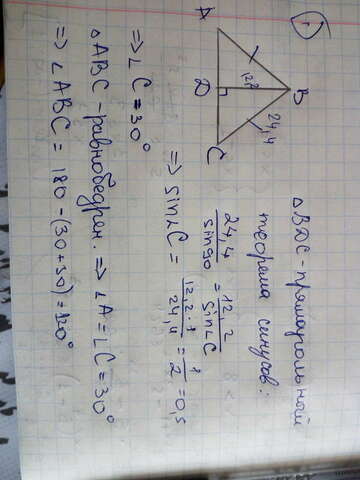 1
A
B
D
C
12,2
24,4
△BDC - прямоугольный
теорема синусов:
24,4/sin90 = 12,2/sin∠C
=> sin∠C = 12,2·1/24,4 = 1/2 = 0,5
=> ∠C = 30°
△ABC - равнобедрен. => ∠A = ∠C = 30°
=> ∠ABC = 180 - (30+30) = 120°